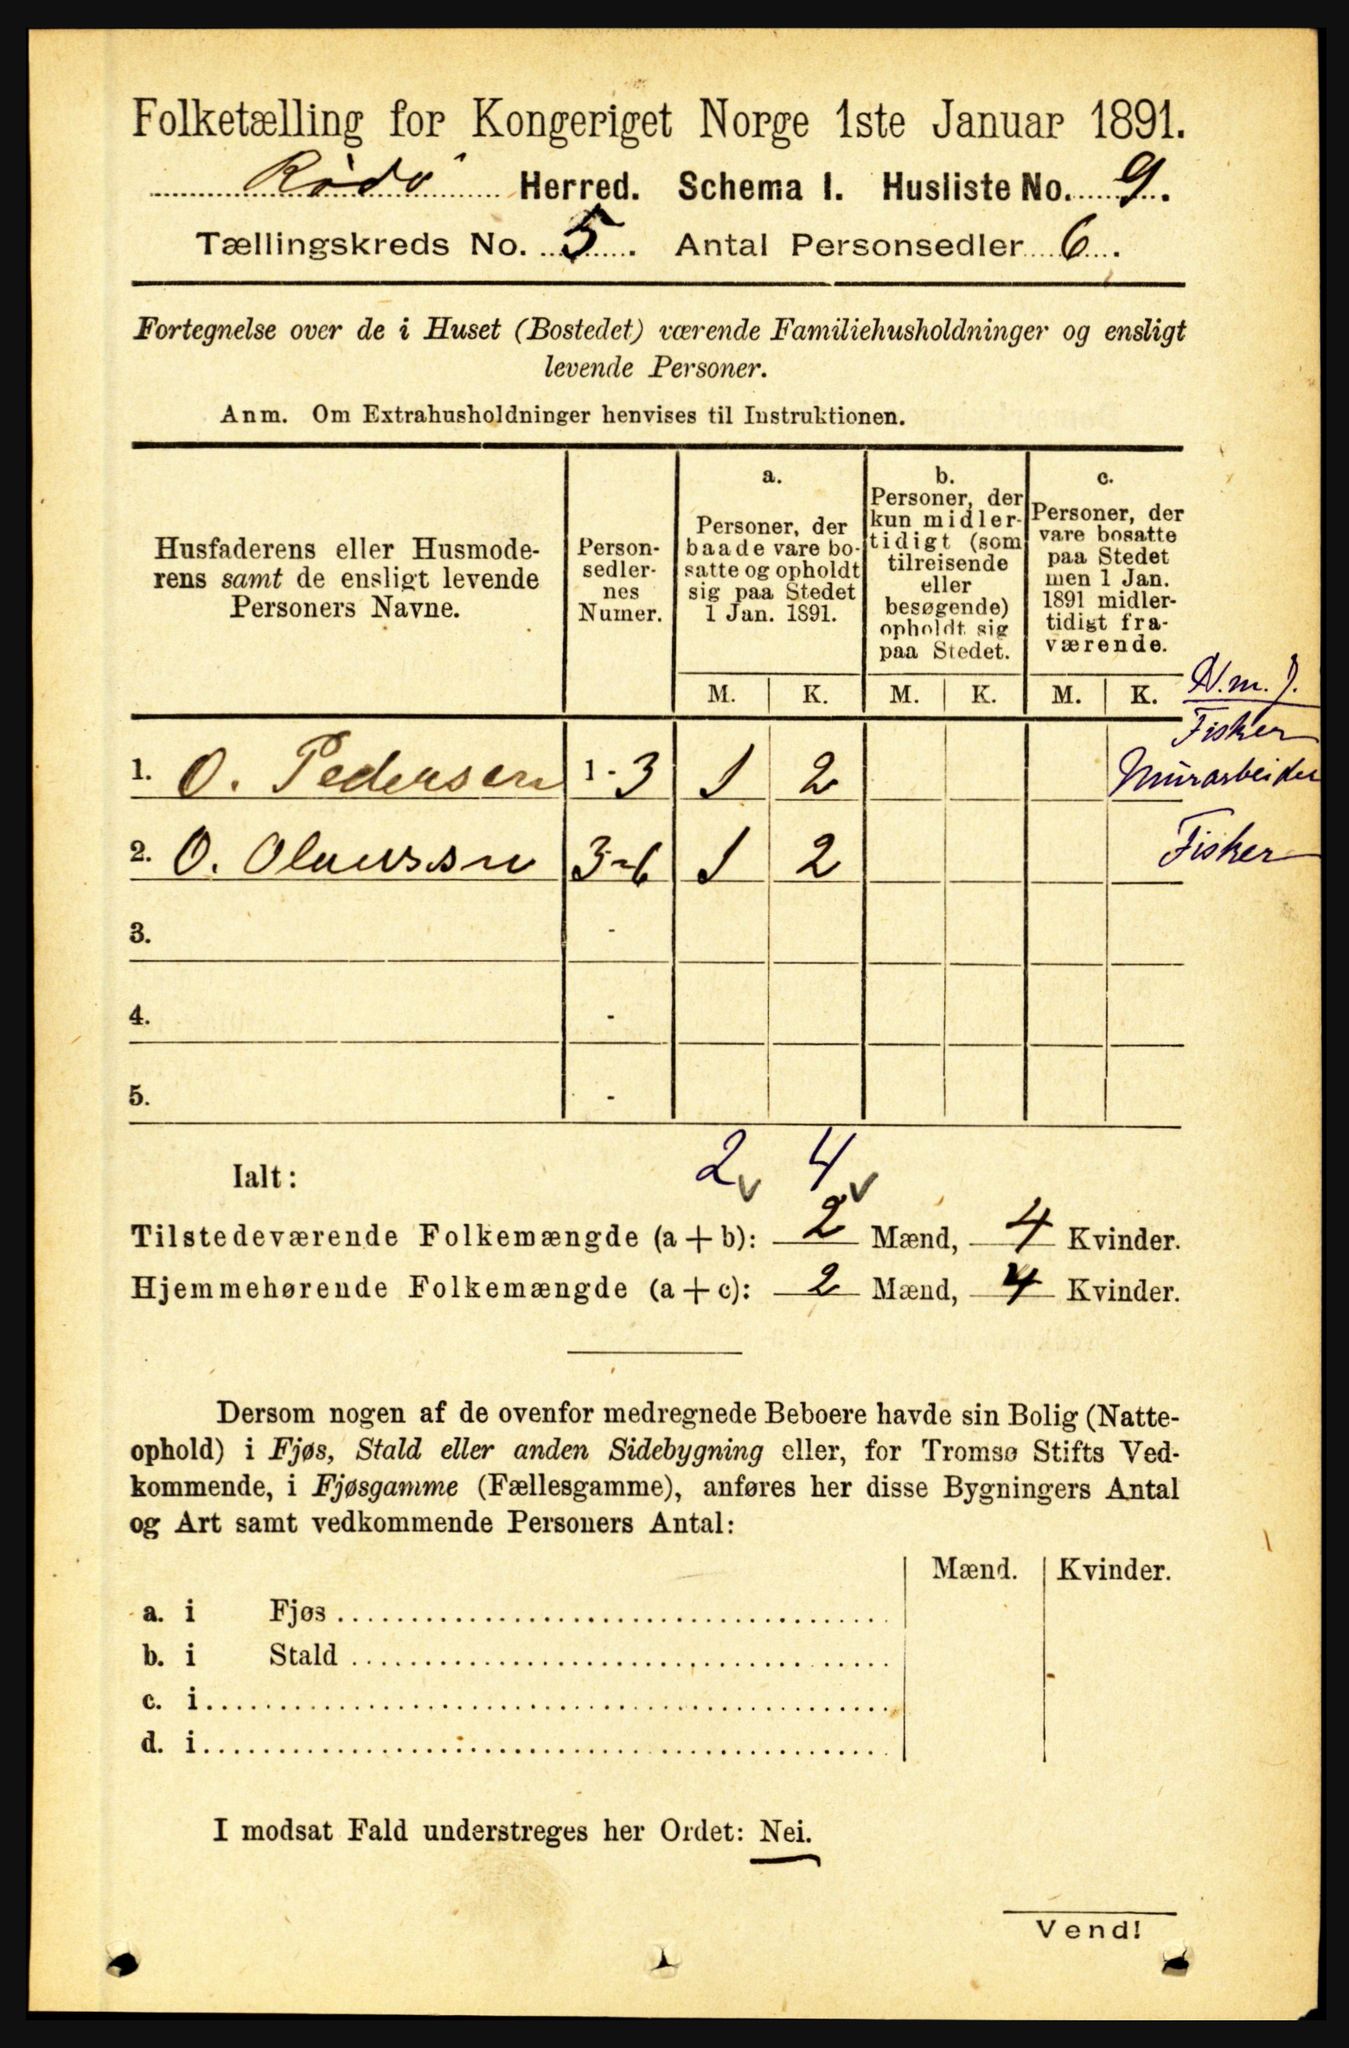 Folketælling for Kongeriget Norge 1ste Januar 1891.
Rödö Herred. Schema I. Husliste No. 9.
Tællingskreds No. 5. Antal Personsedler 6.
Fortegnelse over de i Huset (Bostedet) værende Familiehusholdninger og ensligt
levende Personer.
Anm. Om Extrahusholdninger henvises til Instruktionen.
Husfaderens eller Husmode-
rens samt de ensligt levende
Personers Navne.
Person-
sedler-
nes
Numer.
a.
Personer, der
baade vare bo-
satte og opholdt
sig paa Stedet
1 Jan. 1891.
b.
Personer, der
kun midler-
tidigt (som
tilreisende
eller
besøgende)
opholdt sig
paa Stedet.
c.
Personer, der
vare bosatte
paa Stedet
men 1 Jan.
1891 midler-
tidigt fra-
værende.
M. K. M. K. M. K.
Fisker
1. O. Pedersen 1 - 3 1 2 Murarbeider
2. O. Olaussen 3-6 1 2 Fisker
3. -
4. -
5. -
Ialt: 2 v 4 v
Tilstedeværende Folkemængde (a + b): 2 Mænd, 4 Kvinder.
Hjemmehørende Folkemængde (a + c): 2 Mænd, 4 Kvinder.
Dersom nogen af de ovenfor medregnede Beboere havde sin Bolig (Natte-
ophold) i Fjøs, Stald eller anden Sidebygning eller, for Tromsø Stifts Ved-
kommende, i Fjøsgamme (Fællesgamme), anføres her disse Bygningers Antal
og Art samt vedkommende Personers Antal:
Mænd. Kvinder.
a. i Fjøs
b. i Stald
c. i
d. i
I modsat Fald understreges her Ordet: Nei.
Vend!